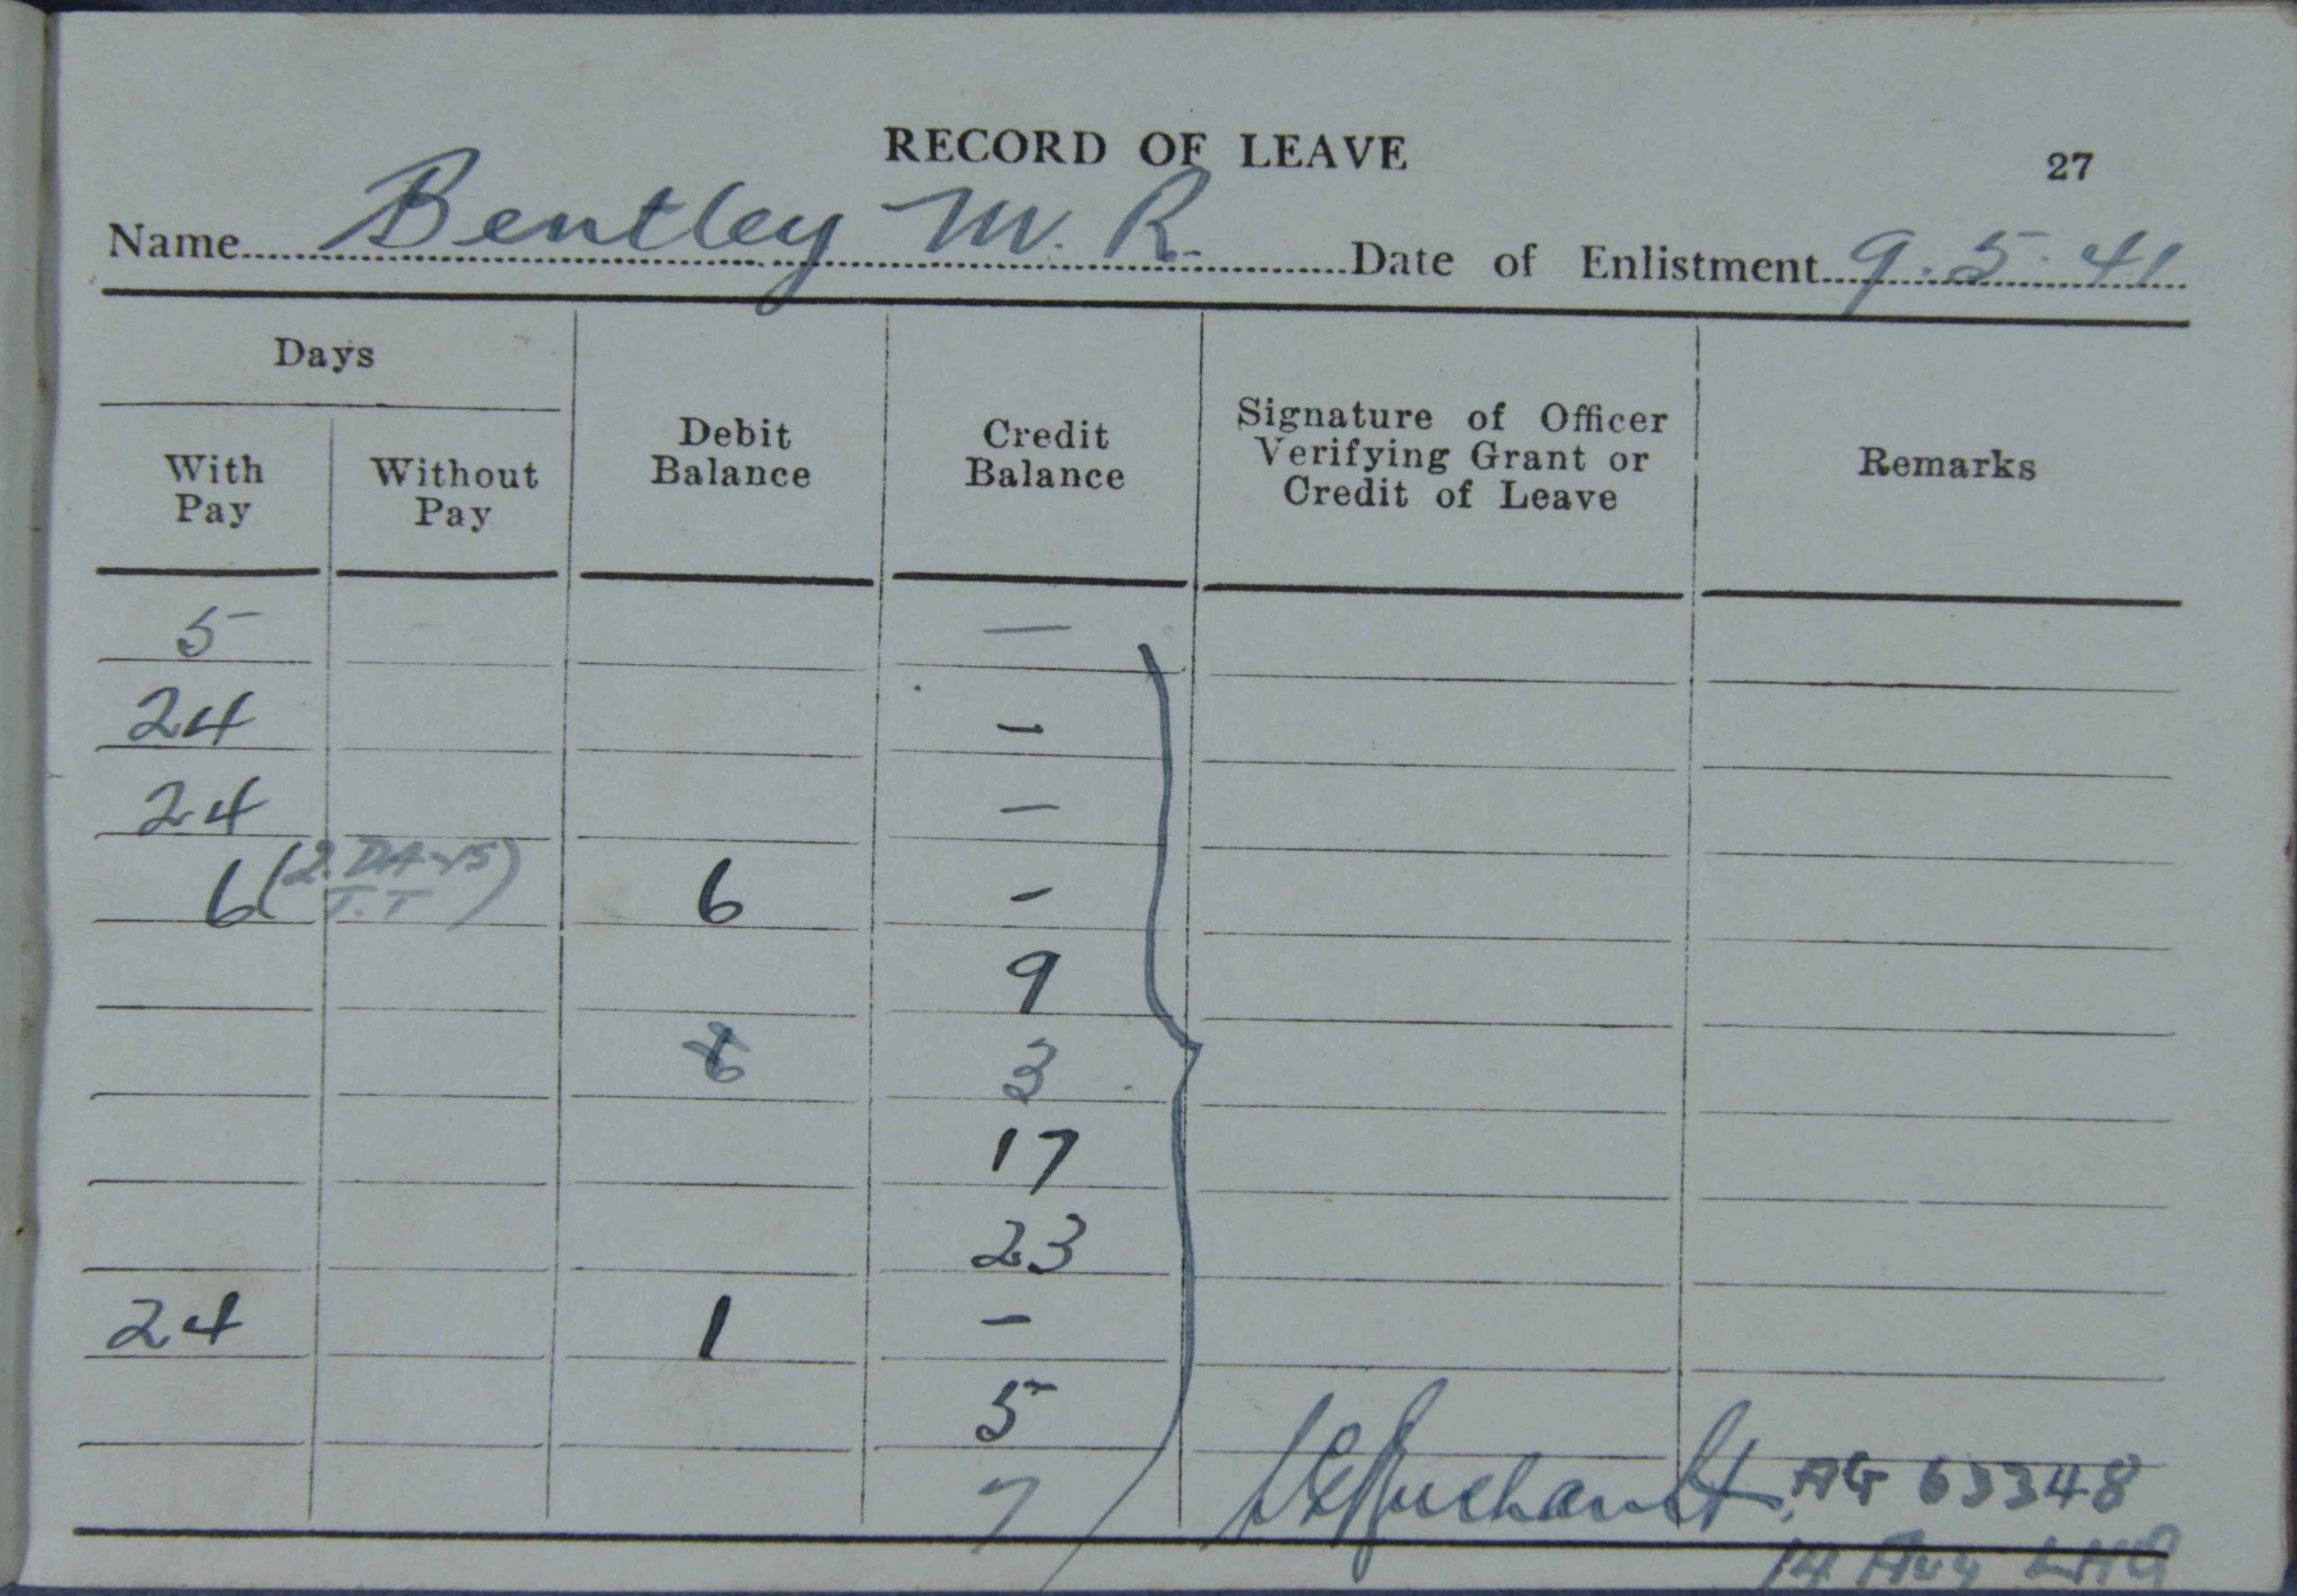 RECORD OF LEAVE 27
Name Bentley M. R. Date of Enlistment 9.5.41
Days
With Pay Without Pay Debit Balance Credit Balance Signature of Officer Verifying Grant or Credit of Leave Remarks
5 —
24 -
24 —
6 (2. DAYS T.T) 6 -
9
6 3
17
23
24 1 -
5
7 Lt AG 63348
14 Aug LHQ